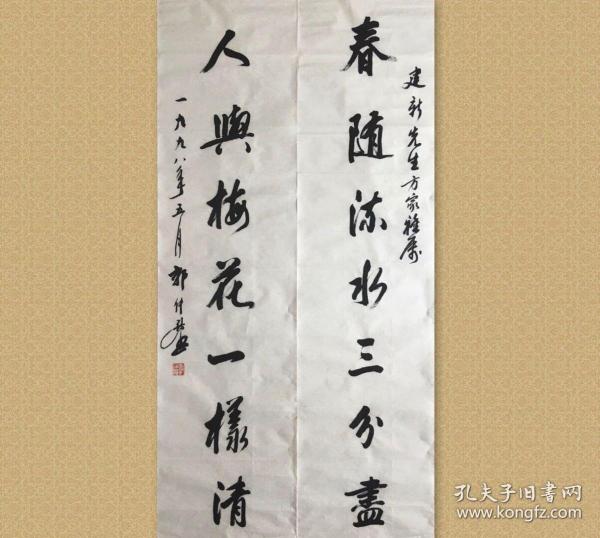 建新先生方家雅属
春随流水三分盡
人與梅花一樣清
一九九八年五月郭仲
孔夫子旧書网
www.kongfz.com